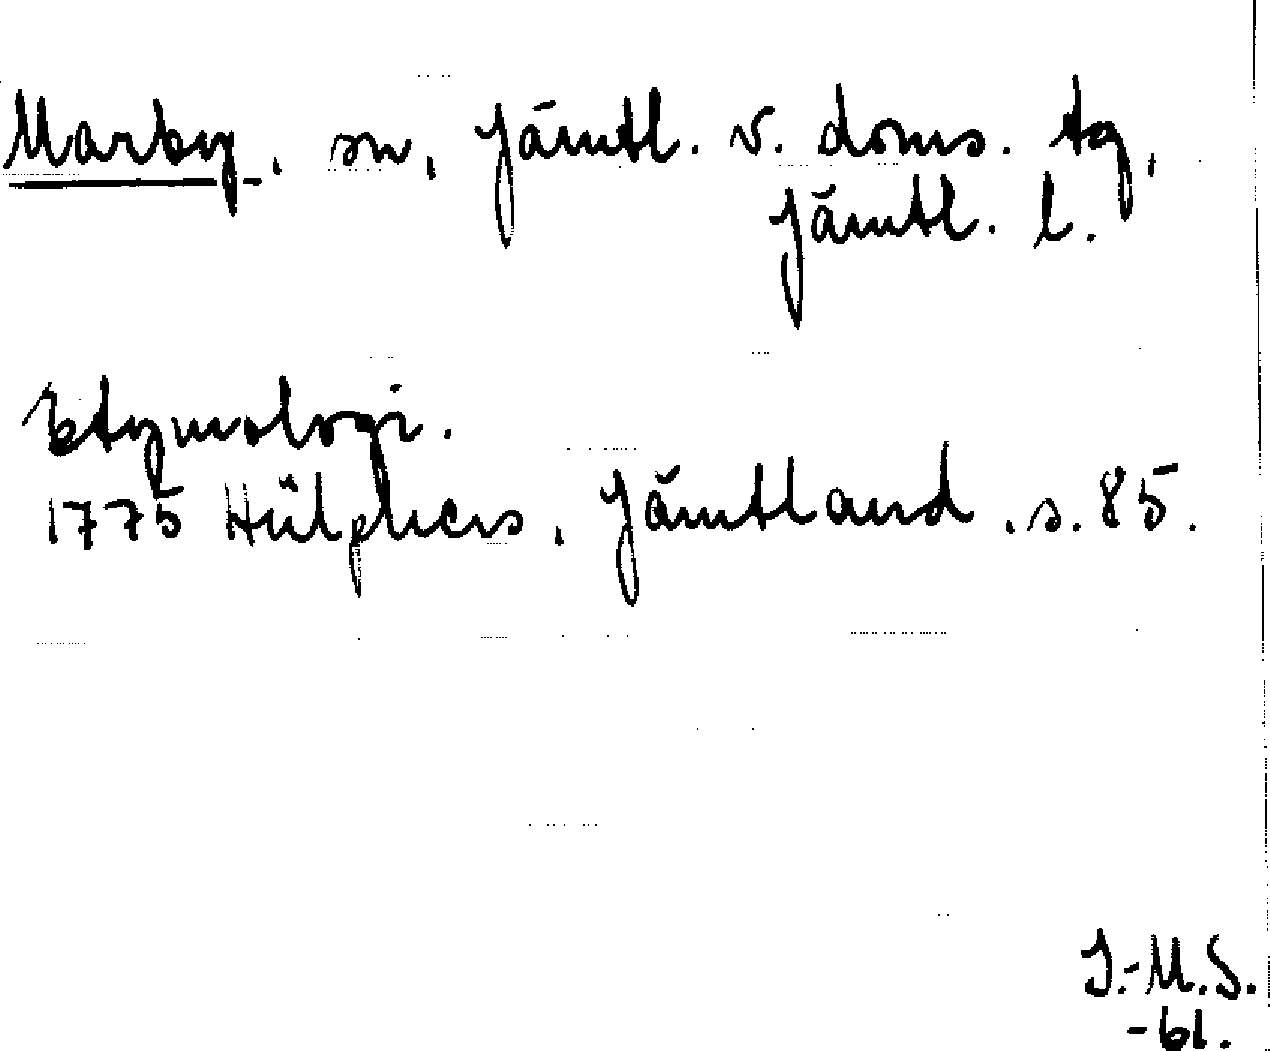 Marby, sn, Jämtl. v. doms. tg,
Jämtl. l.
Etymologi.
1775 Hülphers, Jämtland, s. 85.
I.-M.S.
-61.